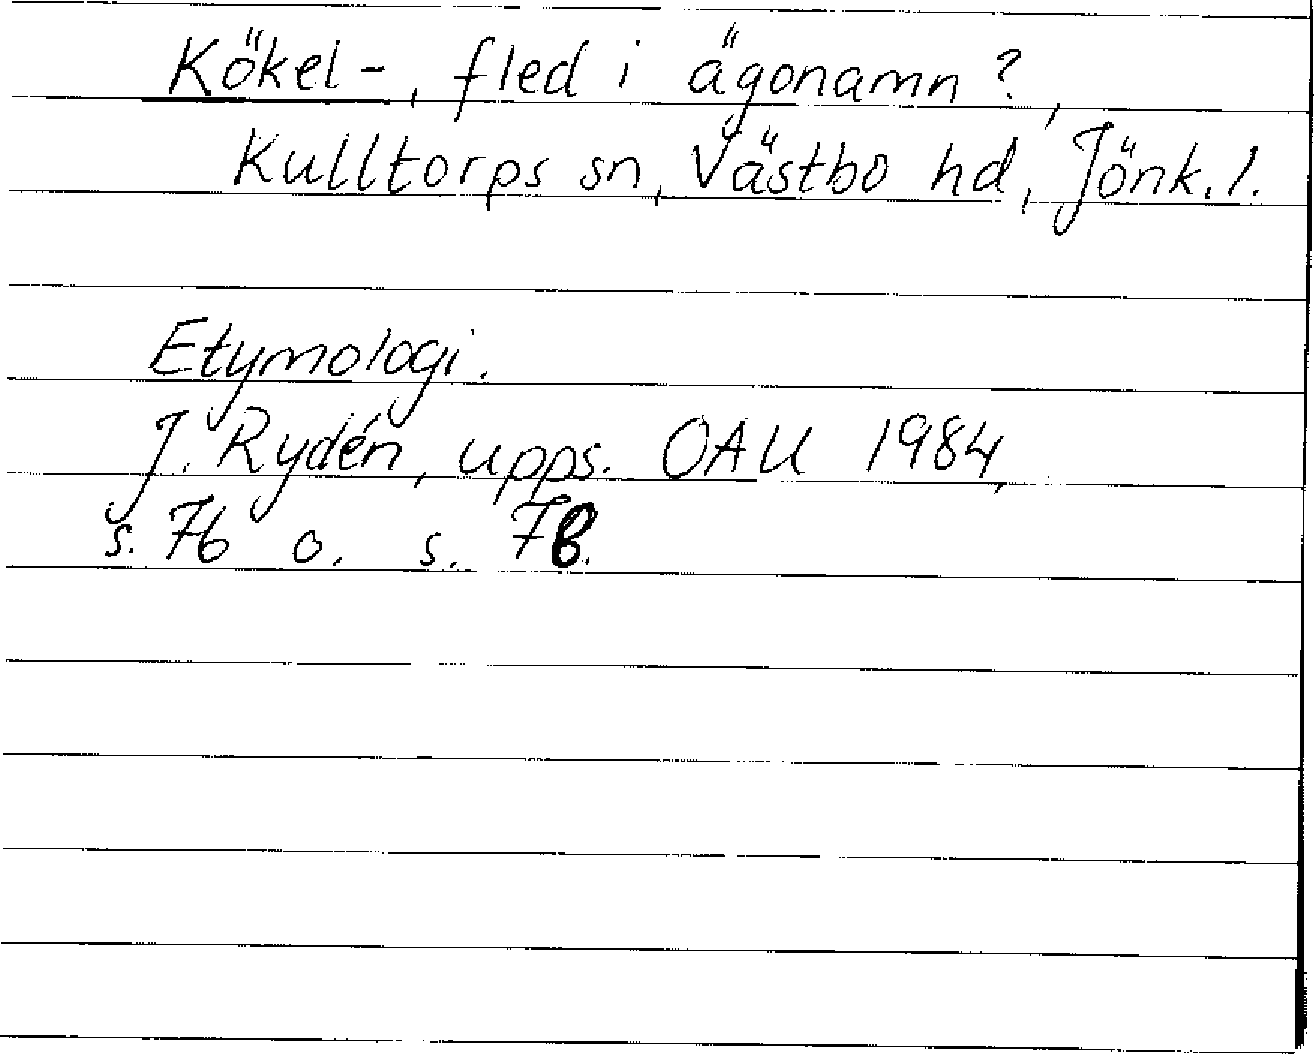 Kökel-, fled i ägonamn?,
Kulltorps sn, Västbo hd, Jönk. l.
Etymologi.
J. Rydén, upps. OAU 1984,
s. 76 o. s. 78.